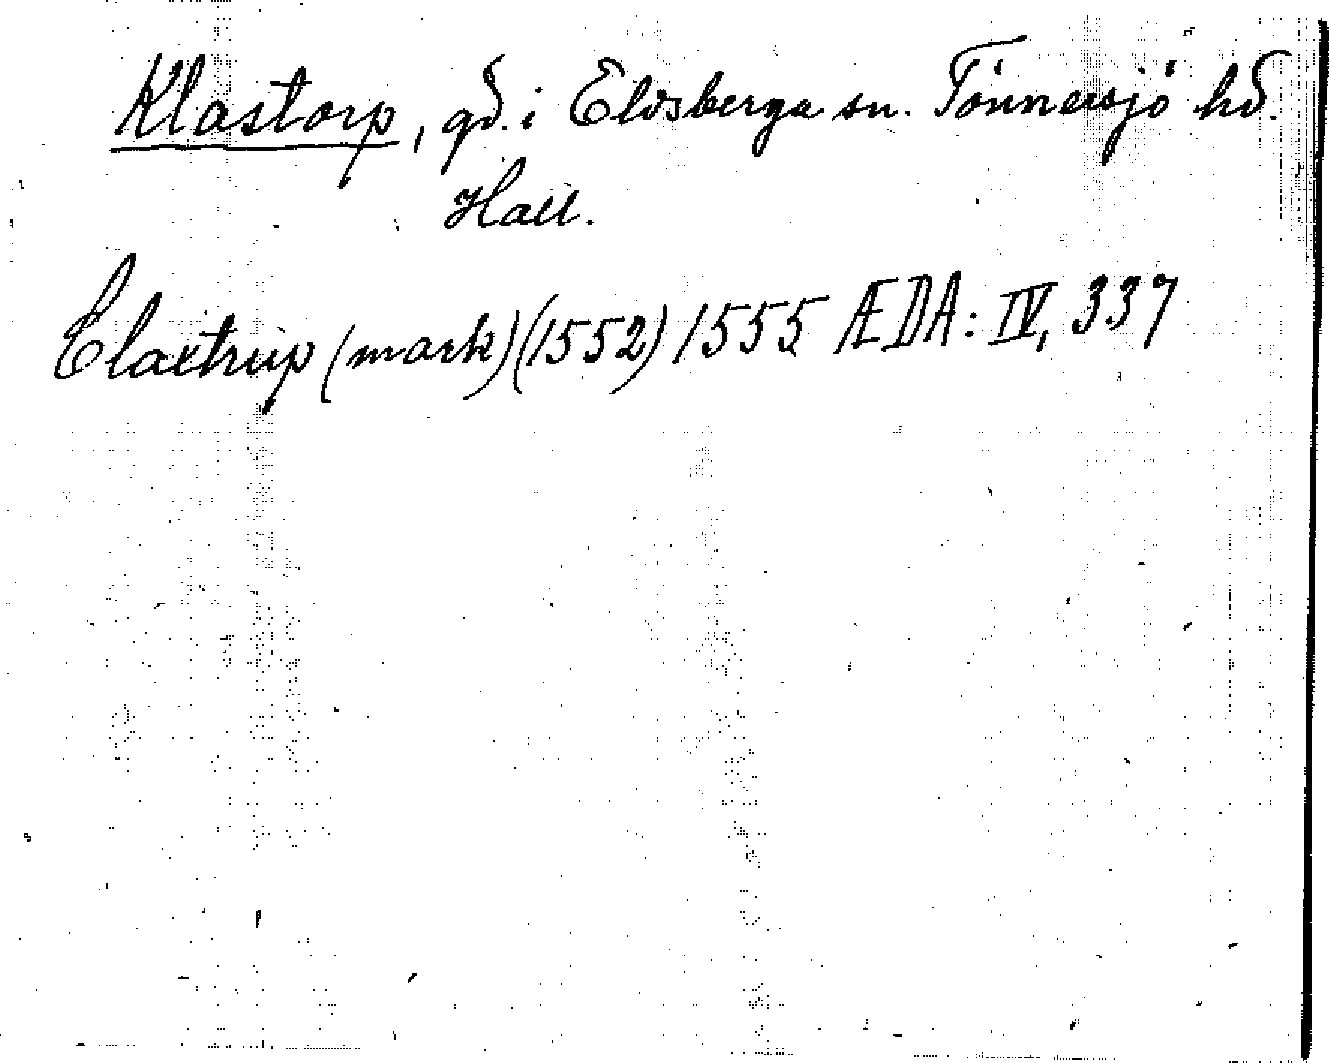 Klastorp, gd. i Eldsberga sn. Tönnersjö hd.
Hall.
Clastrup (mark) (1552) 1555 ÆDA: IV, 337